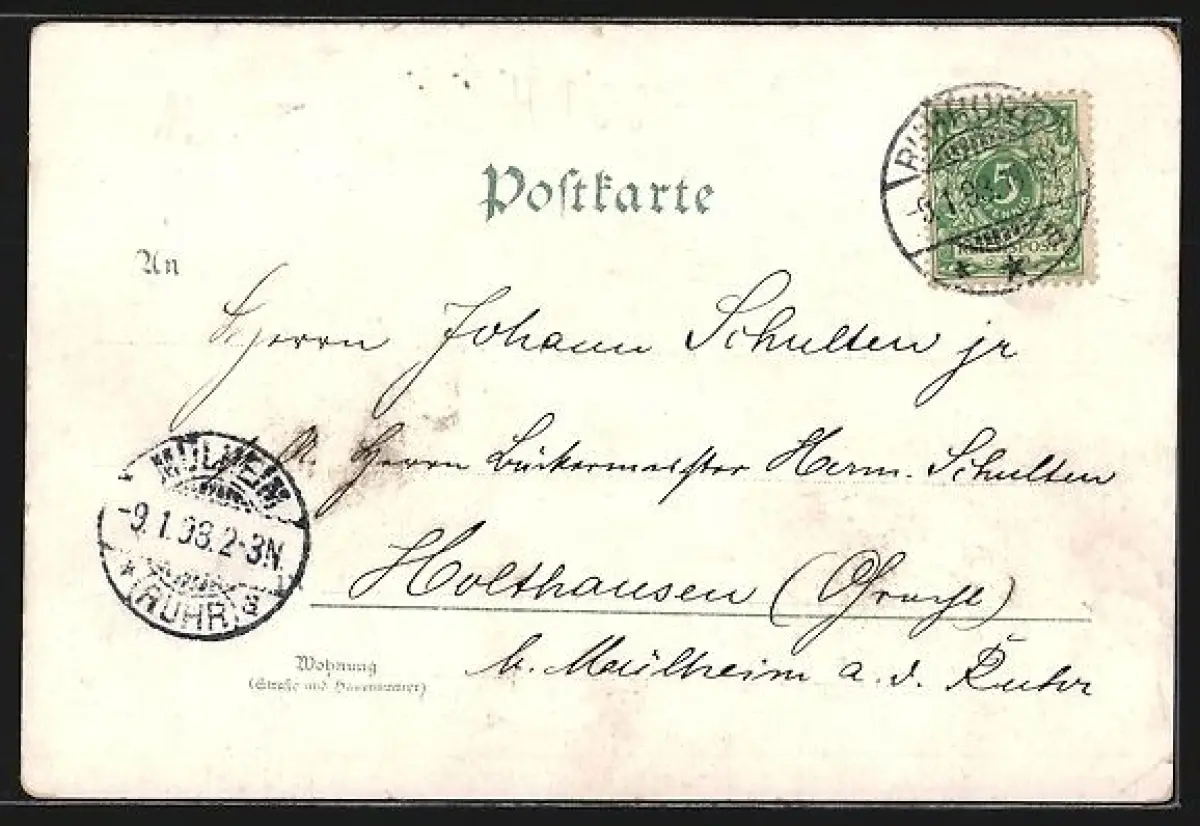 Postkarte
5
REICHSPOST
-9.1.98.
An
Herrn Johann Schulten jr
Herrn Bäckermeister Herm. Schulten
MÜLHEIM
-9.1.98.2-3N.
(RUHR)
Holthausen
b. Mülheim a. d. Ruhr
Wohnung
(Straße und Hausnummer)